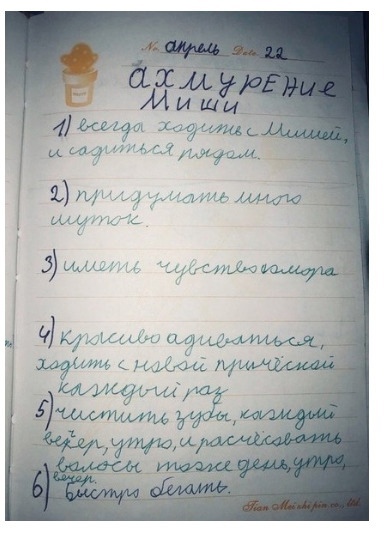 No. апрель Date. 22
АХМУРЕНИЕ
МИШИ
1) всегда ходить с Мишей,
и садиться рядом.
2) придумать много
шуток.
3) иметь чувство юмора
4) красиво адиваться,
ходить с новой причёской
каждый раз
5) чистить зубы, каждый
вечер, утро, и расчёсовать
волосы тоже день, утро,
вечер.
6) Быстро бегать.